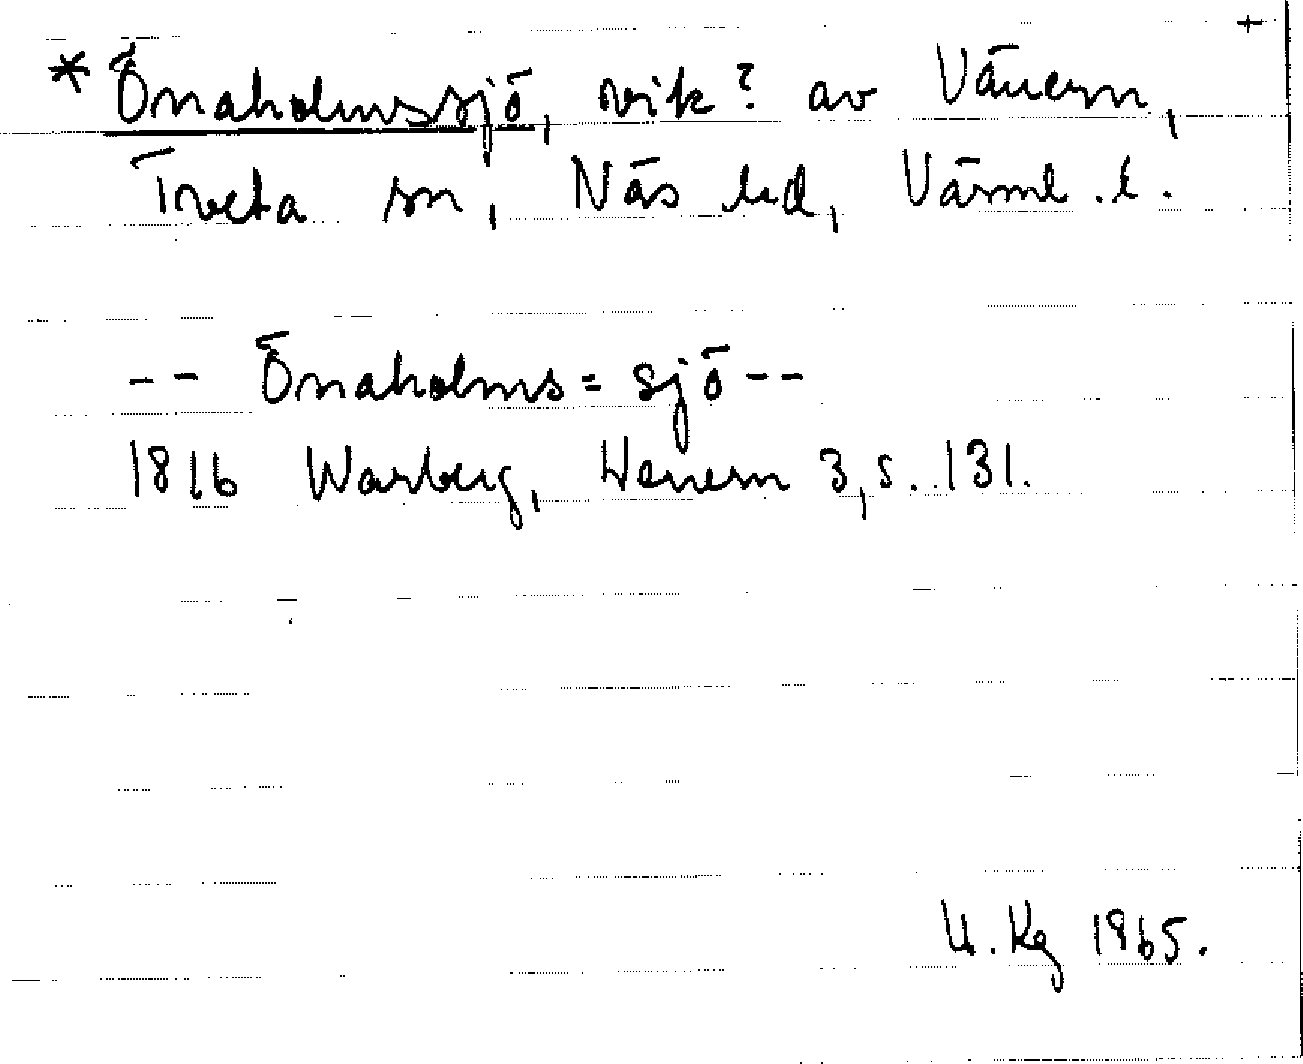 +
* Önaholmssjö, vik? av Vänern,
Tveta sn, Näs hd, Värml. l.
-- Önaholms=sjö --
1816 Warberg, Wenern 3, s. 131.
U. Kg 1965.